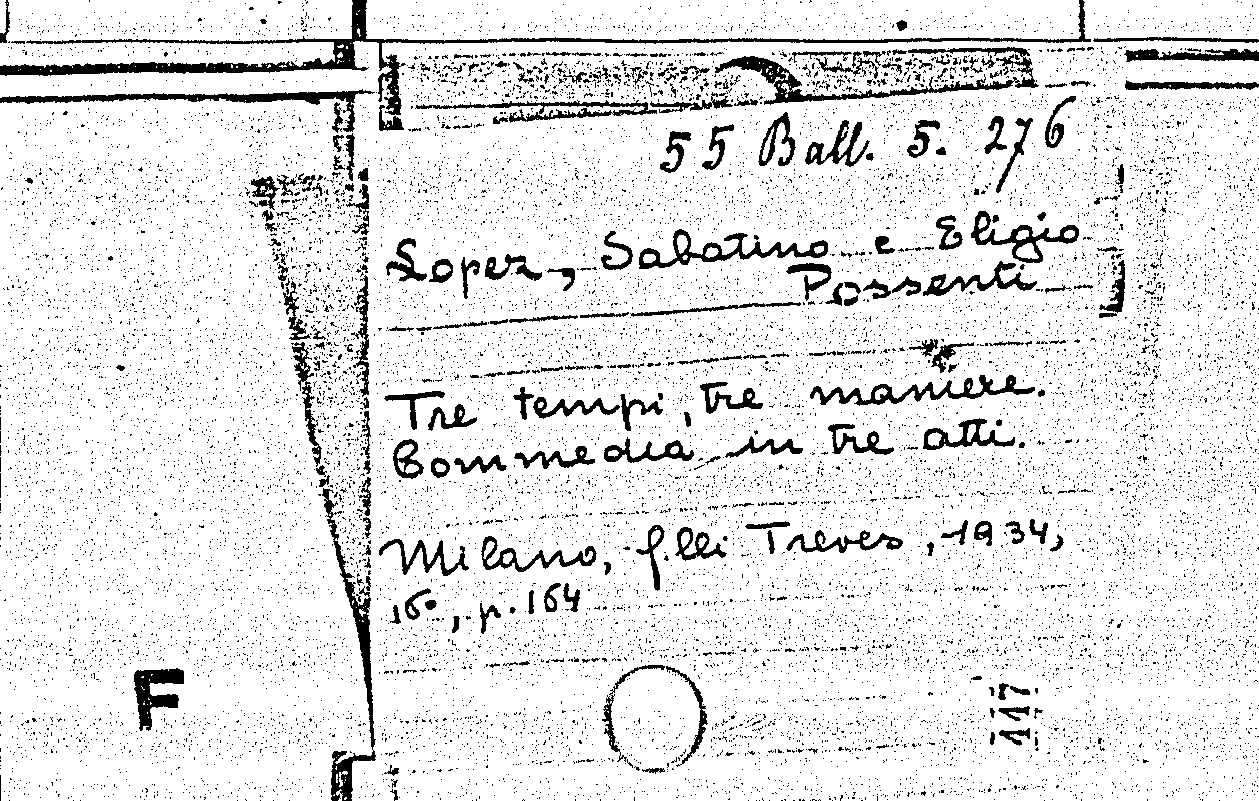 55 Ball. 5. 276
Lopez, Sabatino e Eligio
Possenti
Tre tempi, tre maniere.
Commedia in tre atti.
Milano, f.lli Treves, 1934,
16°, p. 164
F
117